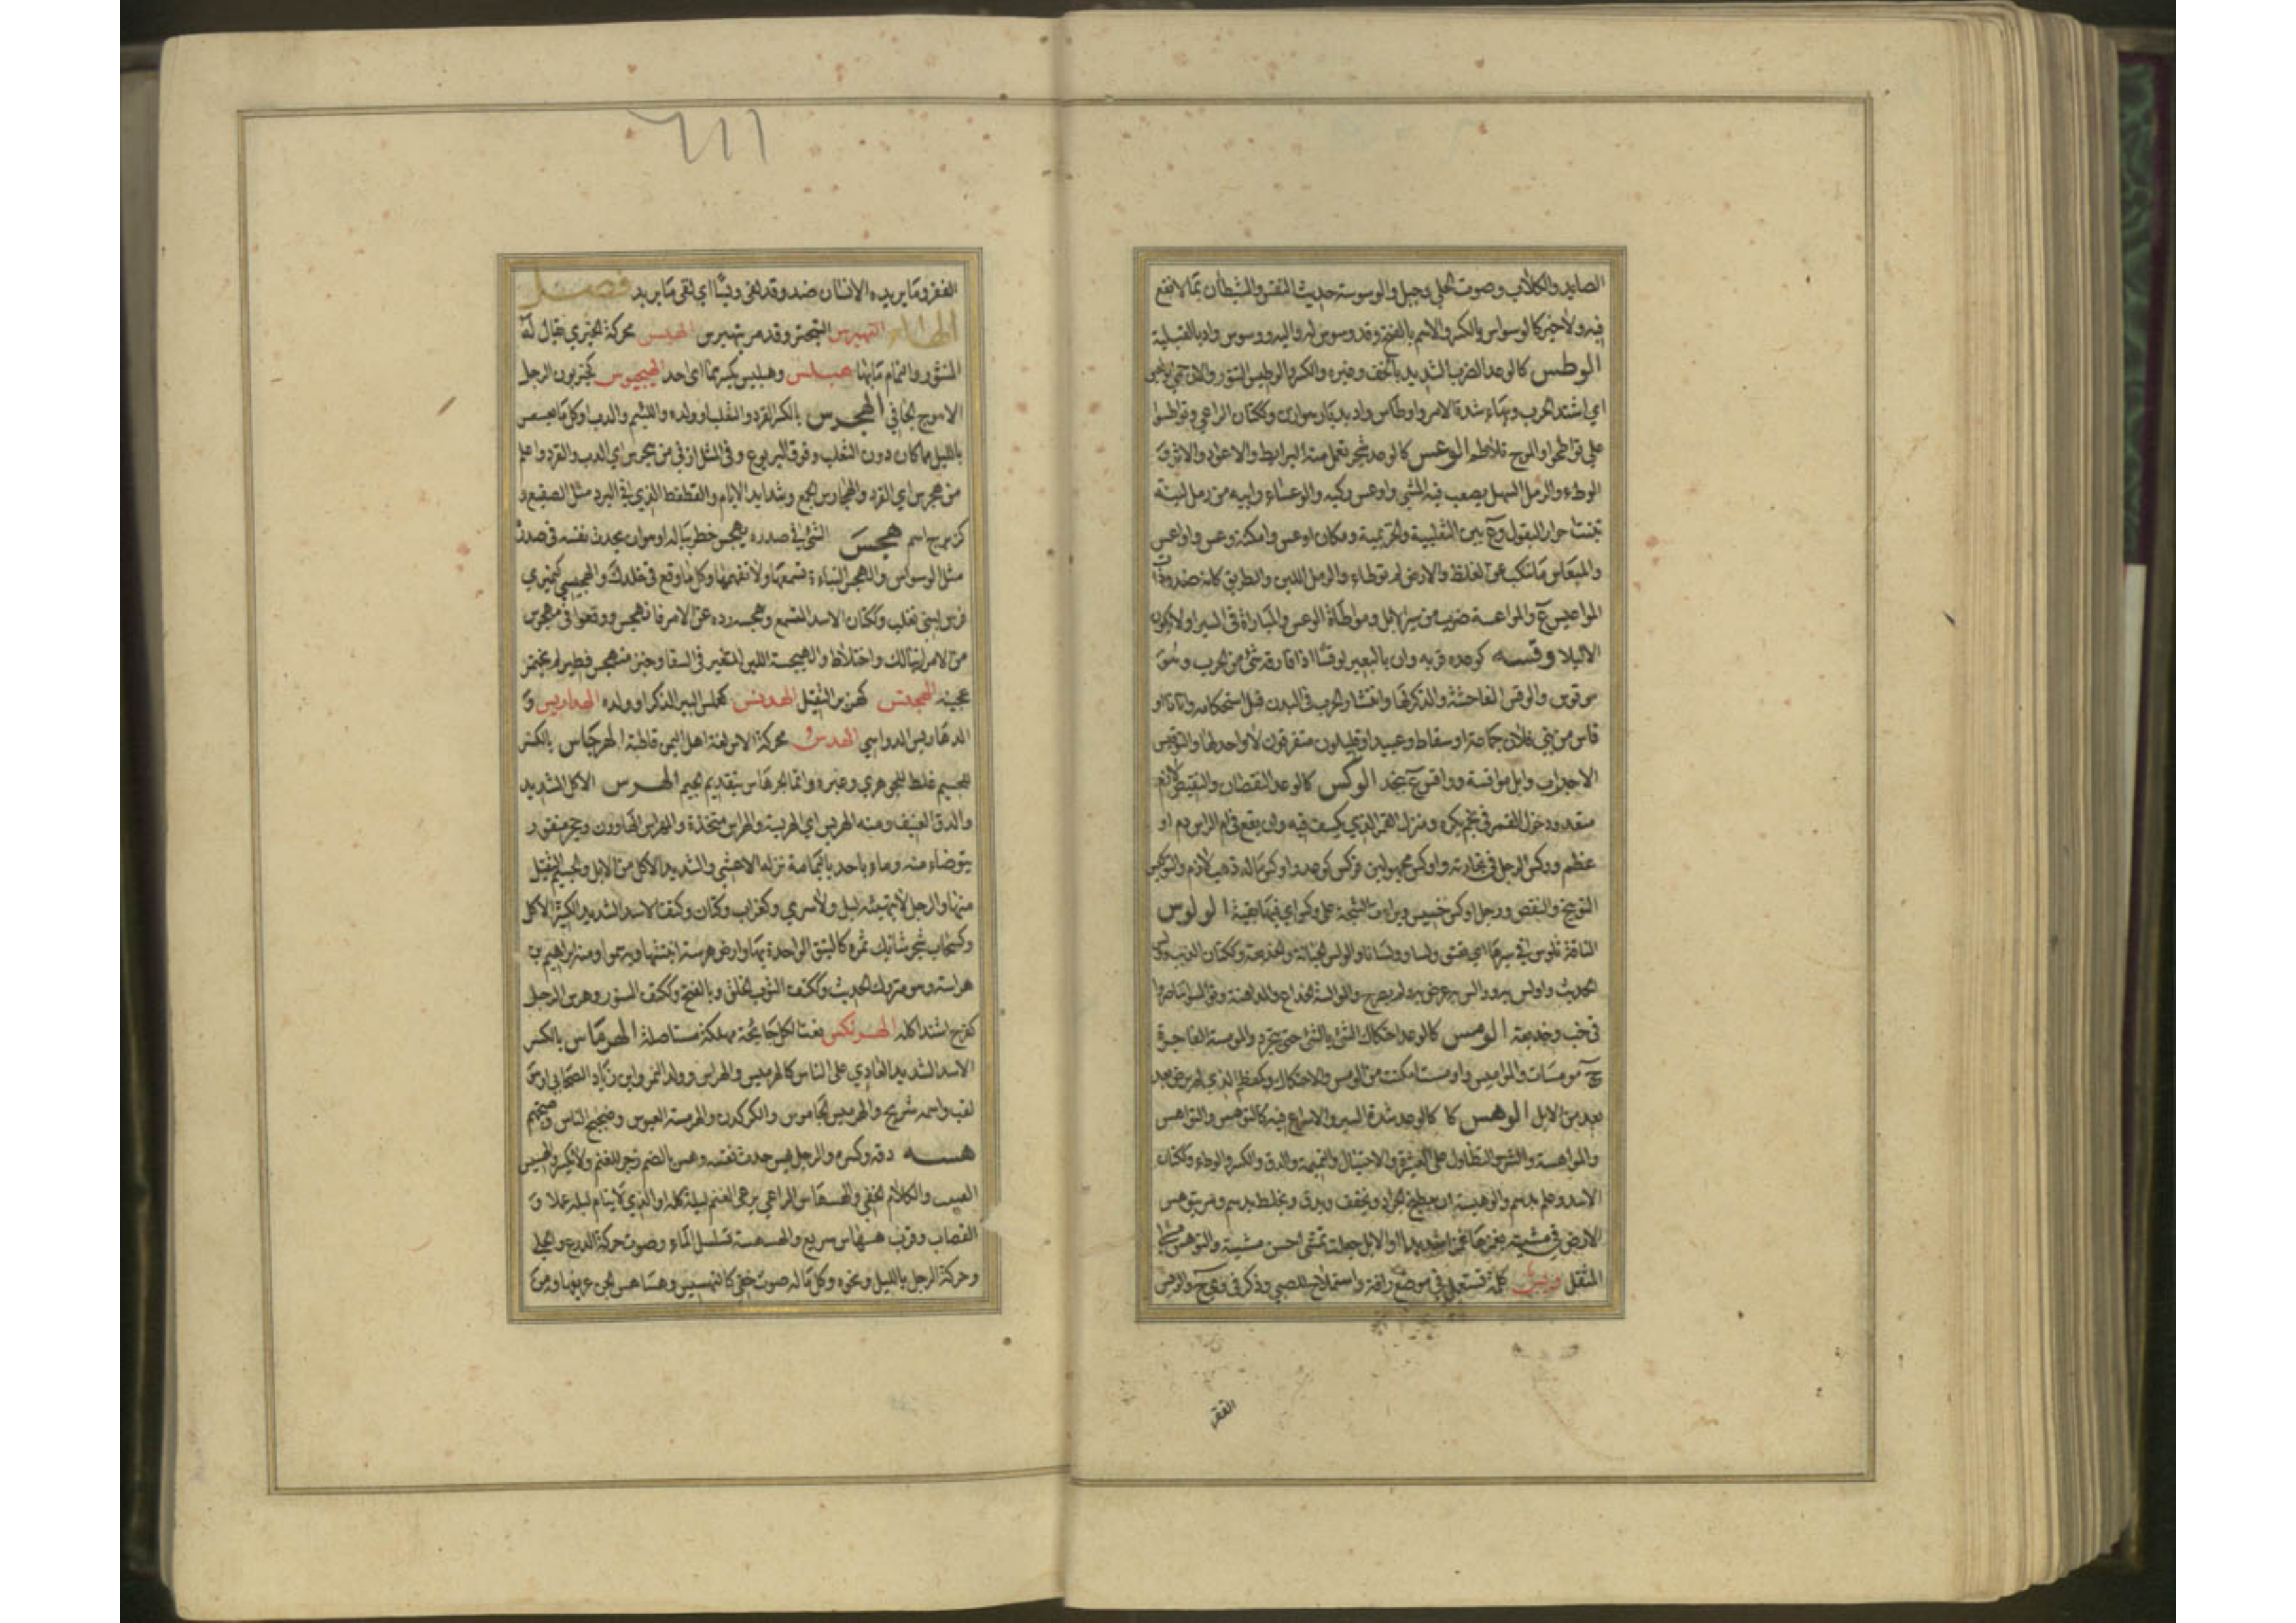 الصايد والكلاب وصوت الحلي وجبل والوسوسة حديث النفس والشيطان بما لا نفع
فيه ولا خير كالوسواس بالكسر والاسم بالفتح وقد وسوس له واليه ووسوس واد بالقبلية
الوطس كالوعد الضرب الشديد بالخف وغيره والكسر والوطيس التنور والان حمي الوطيس
اي اشتد الحرب وبهاء شدة الامر واوطاس واد بديار هوازن وككتان الراعي وتواطسوا
علي تواطحوا والموج تلاطم الوعس كالوعد شجر تعمل منه البرابط والاعواد والاثر و
الوطء والرمل السهل يصعب فيه المشي واوعس ركبه والوعساء رابية من رمل لينة
تنبت احرار البقول وع بين الثعلبية والخزيمية ومكان اوعس وامكنة وعس واواعس
والميعاس ما تنكب عن الغلظ والارض لم توطاء والرمل اللين والطريق كانه ضد وذات
المواعيس ع والمواعسة ضرب من سير الابل ومواطاة الوعس والمباراة في السير او لا تكون
الا ليلا وقسه كوعده قربه وان بالبعير لوقسا اذا قارفه شئ من الجرب وهو
موقوس والوقس الفاحشة والذكر لها وانتشار الجرب في البدن قبل استحكامه واتانا او
قاس من بني فلان جماعة او سقاط وعبيد او قليلون متفرقون لا واحد لها والتوقيس
الاجراب وابل مواقسة وواقس ع بنجد الوكس كالوعد النقصان والتنقيص لازم
متعد ودخول القمر في نجم يكره ومنزل القمر الذي يكسف فيه وان يقع في ام الراس دم او
عظم ووكس الرجل في تجارته واوكس مجهولين وكس كوعد واوكس ماله ذهب لازم والتوكيس
التوبيخ والنقص ورجل اوكس خسيس وبراءت الشجة على وكس اي فيها بقية الولوس
الناقة تلوس في سيرها اي تعنق ولسا وولسانا والولس الخيانة والخديعة وككتان الذئب ولس
الحديث واولس به ووالس به عرض به ولم يصرح والموالسة الخداع والمداهنة وتوالسوا تناصروا
في خب وخديعة الومس كالوعد احتكاك الشئ بالشئ حتى ينجرد والمومسة الفاجرة
ج مومسات والمواميس واومست امكنت من الومس والاحتكاك وكعظم الذي لم يرض بعد
بعد من الابل الوهس كا كالوعد شدة السير والاسراع فيه كالتوهس والتواهس
والمواهسة والشر والتطاول على العشيرة والاختيال والنميمة والدق والكسر والوطء وككتان
الاسد وعلم بدسم والوهيسة ان يطبخ الجراد ويجفف ويدق ويخلط بدسم ومر يتوهس
الارض في مشيته يغمزها غمزا شديدا والابل جعلت تمشي احسن مشية والتوهس مشي
المثقل ويس كلة تستعمل في موضع رافة واستملاح للصبي وذكر في ويح والويس
الفقر
٦١١
الفقر وما يريده الانسان ضد وقد لقي ويسا اي لقي ما يريد فصل
الهاء التهيرس التبختر وقد مر يتهيرس الهبس محركة الخيري يقال له
المنثور والنمام ما بها هبلس وهبليس بكسرهما اى احد الهيجبوس كحيزبون الرجل
الاهوج الجافي الهجرس بالكسر القرد والثعلب او ولده واللئيم والدب او كل ما يعسعس
بالليل مما كان دون الثعلب وفوق اليربوع وفي المثل ازنى من هجرس اي الدب والقرد واغلم
من هجرس اي القرد والهجارس الجمع وشدايد الايام والقطقط الذي في البرد مثل الصقيع و
كزبرج اسم هجس الشئ في صدره يهجس خطر بباله او هو ان يحدث نفسه في صدره
مثل الوسواس والهجس النباءة تسمعها ولا تفهمها وكل ما وقع في خلدك والهجيسي كنميري
فرس لبني تغلب وككتان الاسد المتسمع وهجسه رده عن الامر فانهجس ووقعوا في مهجوس
من الامر ارتباك واختلاط والهجيسة اللبن المتغير في السقا وخبز متهجس فطير لم يختمر
عجينه الهجفس كهزبر الثقيل الهدبس كعملس الببر الذكر او ولده الهداريس و
الدهاريس الدواهي الهدس محركة الاس لغة اهل اليمن قاطبة الهرجاس بالكسر
للجسيم غلط للجوهري وغيره وانما الجرهاس بتقديم الجيم الهرس الاكل الشديد
والدق العنيف ومنه الهريس اي الهريسة والهراس متخذه والمهراس الهاوون وحجر منقور
يتوضاء منه وماء باحد باليمامة نزله الاعشى والشديد الاكل من الابل والجسيم الثقيل
منها والرجل لا يتهيبه ليل ولا سرى وكغراب وكتان وكتف الاسد الشديد الكثير الاكل
وكسحاب شجر شائك ثمره كالنبق الواحدة بهاء وارض هرسة انبتتها وبه سموا ومنه ابراهيم بن
هراسة وهو متروك الحديث وككتف الثوب الخلق وبالفتح وككتف السنور وهرس الرجل
كفرح اشتد اكله الهرنكس نعت لكل جائحة مهلكة مستاصلة الهرماس بالكسر
الاسد الشديد العادي على الناس كالهرميس والهراس وولد النمر وابن زياد الصحابي او هو
لقب واسمه شريح والهرميس الجاموس والكركدن والهرمسة العبوس وضجيج الناس وصخبهم
هسه دقه وكسره والرجل يهس حدث نفسه وهس بالضم زجر للغنم ولا يكسر والهسيس
العيب والكلام الخفي والهسهاس الراعي يرعى الغنم ليلة كله او الذي لا ينام ليله عملا و
القصاب وقرب هسهاس سريع والهسهسة تسلسل الماء وصوت حركة الدرع والحلي
وحركة الرجل بالليل ونحوه وكل ما له صوت خفي كالتهسيس وهساهس الجن عزيفها ومن